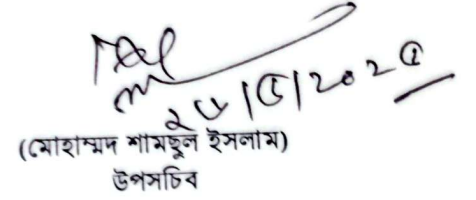 ২৬/৫/২০২৫
(মোহাম্মদ শামছুল ইসলাম)
উপসচিব